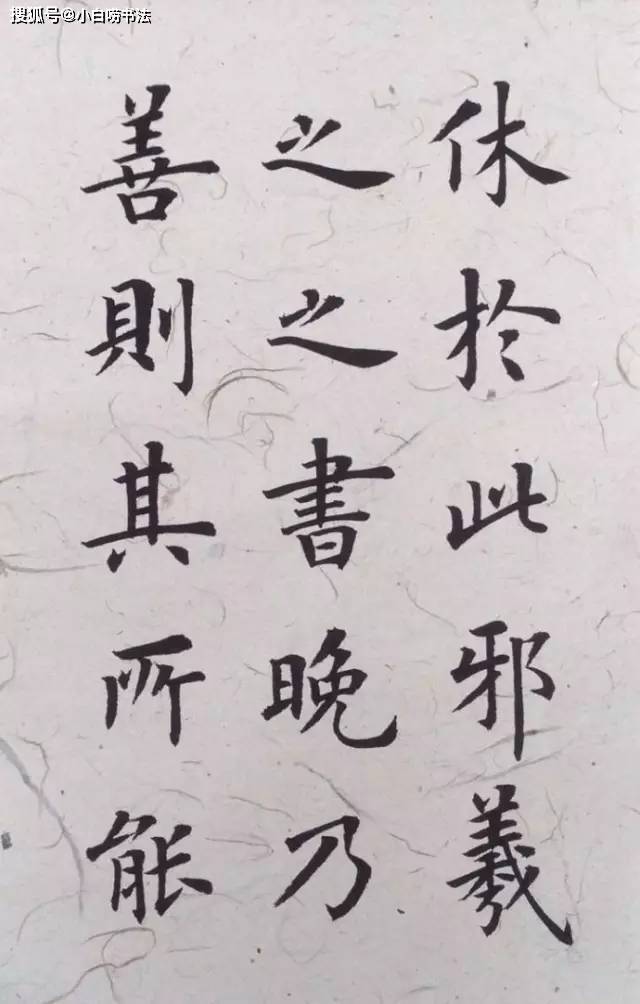 搜狐号@小白唠书法
休於此邪羲
之之書晚乃
善則其所能